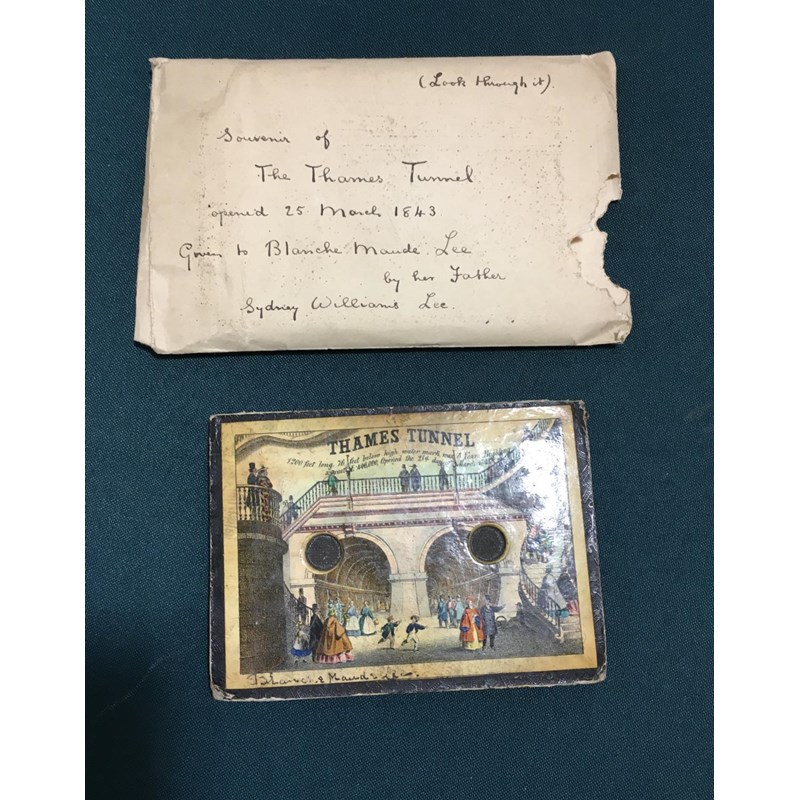 (Look through it).
Souvenir of
The Thames Tunnel
opened 25 March 1843
Given to Blanche Maude Lee
by her Father
Sydney Williams Lee.
THAMES TUNNEL
1200 feet long, 76 feet below high water mark, was 8 Years
Opened the
Blanche Maude Lee